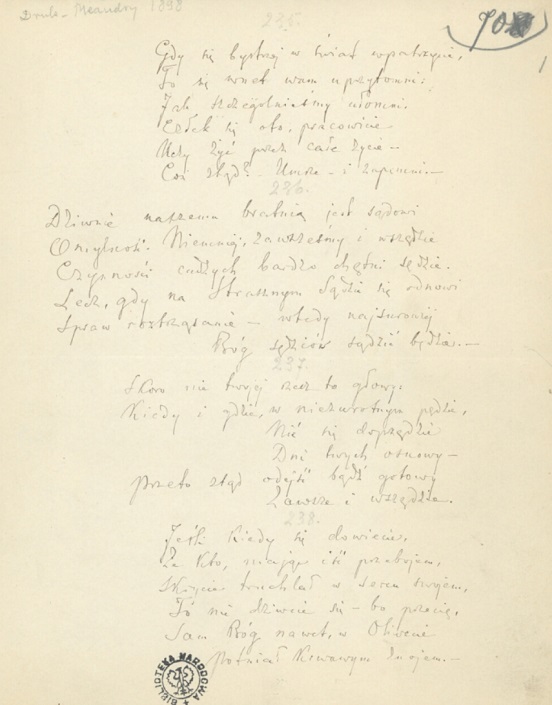 Druk. Meandry 1898
235.
Gdy się bystrzej w świat wpatrzycie,
To się wnet wam uprzytomni:
Jak szczególniśmy ułomni.
Człek się ot, pracowicie
Uczy żyć przez całe życie
Coś stąd? - Umrze - i zapomni. -
236.
Dziwnie naszemu bratnią jest sądowi
Omylność. Niemniej, zawsześmy i wszędzie
Czynności cudzych bardzo chętni sędzie.
Lecz, gdy na Strasznym Sądzie się odnowi
Spraw roztrząsanie - wtedy najsurowiej
Bóg sędziów sądzić będzie. -
237.
Skoro nie twojej rzecz to głowy.
Kiedy i gdzie, w niezwrotnym pędzie,
Nić się doprzędzie
Dni twych osnowy -
Przeto stąd odejść bądź gotowy
Zawsze i wszędzie.
238.
Jeśli kiedy się dowiecie,
Że kto, mając iść przebojem,
Skrycie truchlał w sercu swojem,
To nie dziwcie się - bo przecię,
Sam Bóg nawet, w Oliwecie
Potniał krwawym znojem. -
BIBLIOTEKA NARODOWA